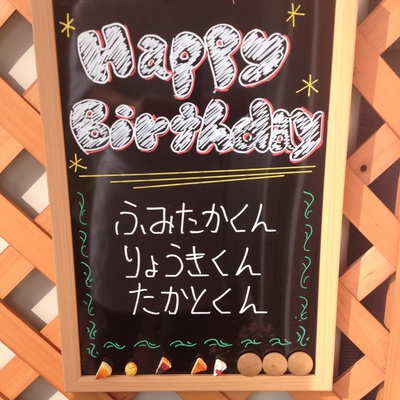 Happy
Birthday
ふみたかくん
りょうきくん
たかとくん